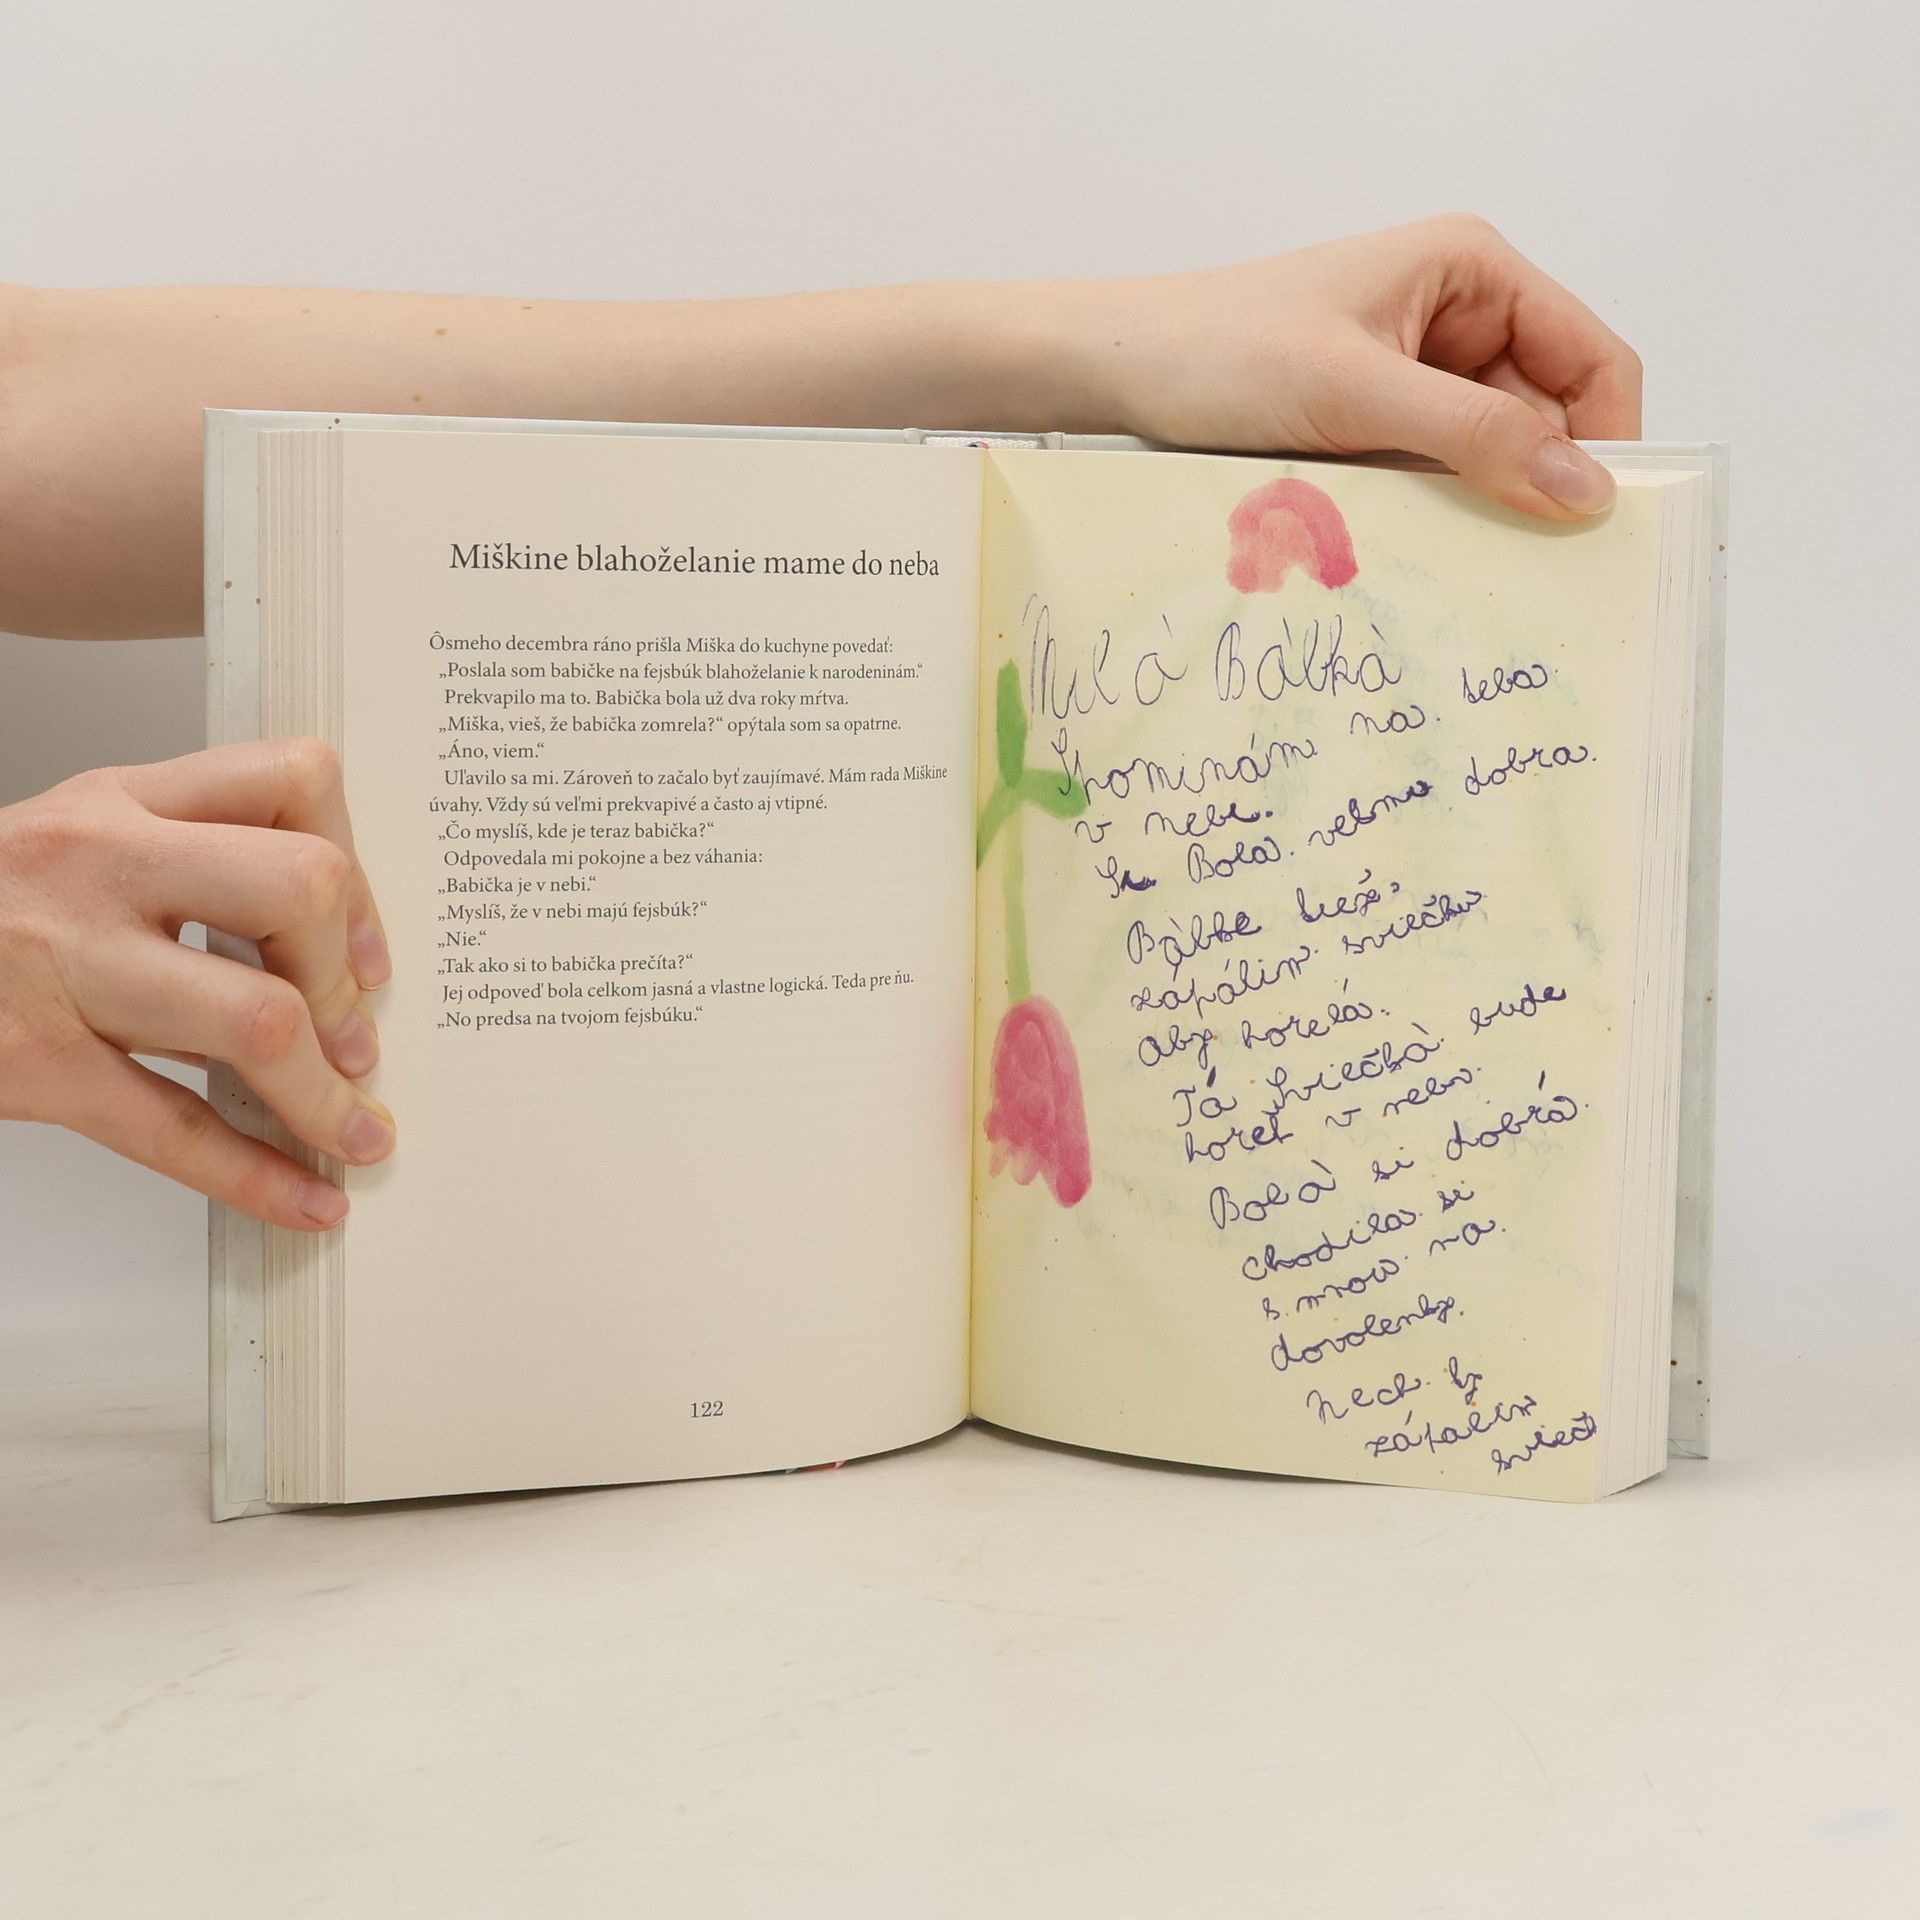 Miškine blahoželanie mame do neba
Ôsmeho decembra ráno prišla Miška do kuchyne povedať:
„Poslala som babičke na fejsbúk blahoželanie k narodeninám.“
Prekvapilo ma to. Babička bola už dva roky mŕtva.
„Miška, vieš, že babička zomrela?“ opýtala som sa opatrne.
„Áno, viem.“
Uľavilo sa mi. Zároveň to začalo byť zaujímavé. Mám rada Miškine
úvahy. Vždy sú veľmi prekvapivé a často aj vtipné.
„Čo myslíš, kde je teraz babička?“
Odpovedala mi pokojne a bez váhania:
„Babička je v nebi.“
„Myslíš, že v nebi majú fejsbúk?“
„Nie.“
„Tak ako si to babička prečíta?“
Jej odpoveď bola celkom jasná a vlastne logická. Teda pre ňu.
„No predsa na tvojom fejsbúku.“
122
Milá Bábkà
Spominám na. teba.
v nebe.
Bola. velmo dobra.
Bábke tiež,
zápálim. sviečku.
aby horelá.
Tá Sviečkà. bude
horet v nebi.
Bolà si dobrá.
chodila. si
s. mnou. na.
dovolenky.
Nech. by
zápalim
svieč